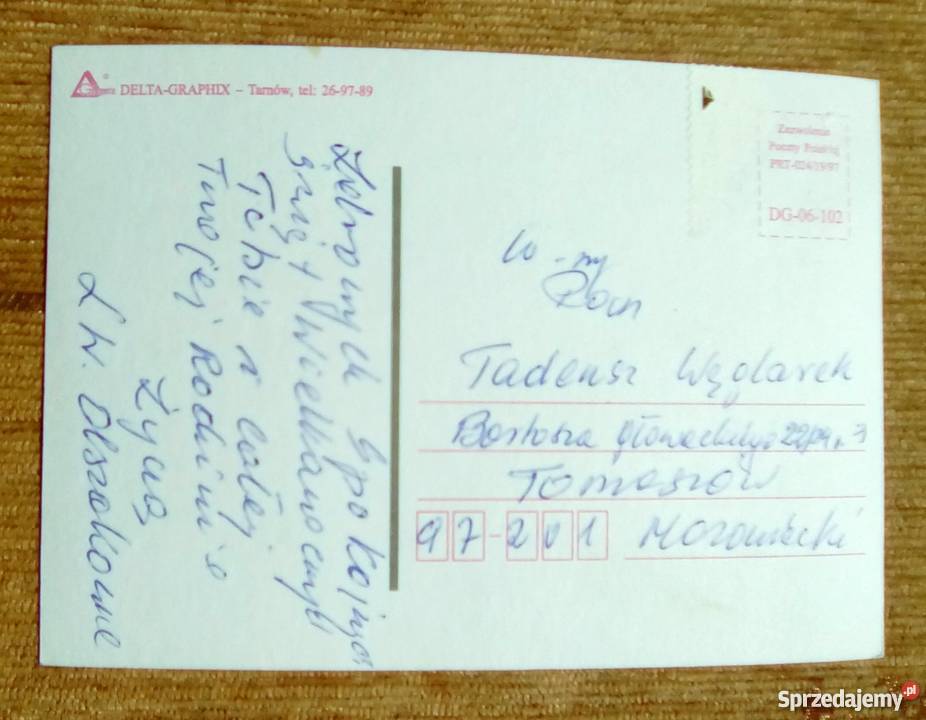 DELTA-GRAPHIX – Tarnów, tel: 26-97-89
Zdrowych Spokojnych
Świąt Wielkanocnych
Tobie i całej
Twojej Rodzinie
Życzą
L.W. Olszakowie
Zezwolenie
Poczty Polskiej
PRT-024/19/97
DG-06-102
W-ny
Pan
Tadeusz Węglarek
Bartosza Głowackiego
Tomaszów
97-201 Mazowiecki
Sprzedajemy.pl